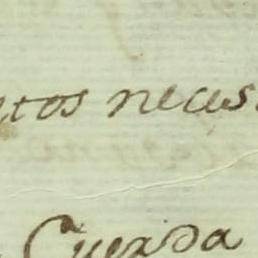 ntos neces
Cuerda